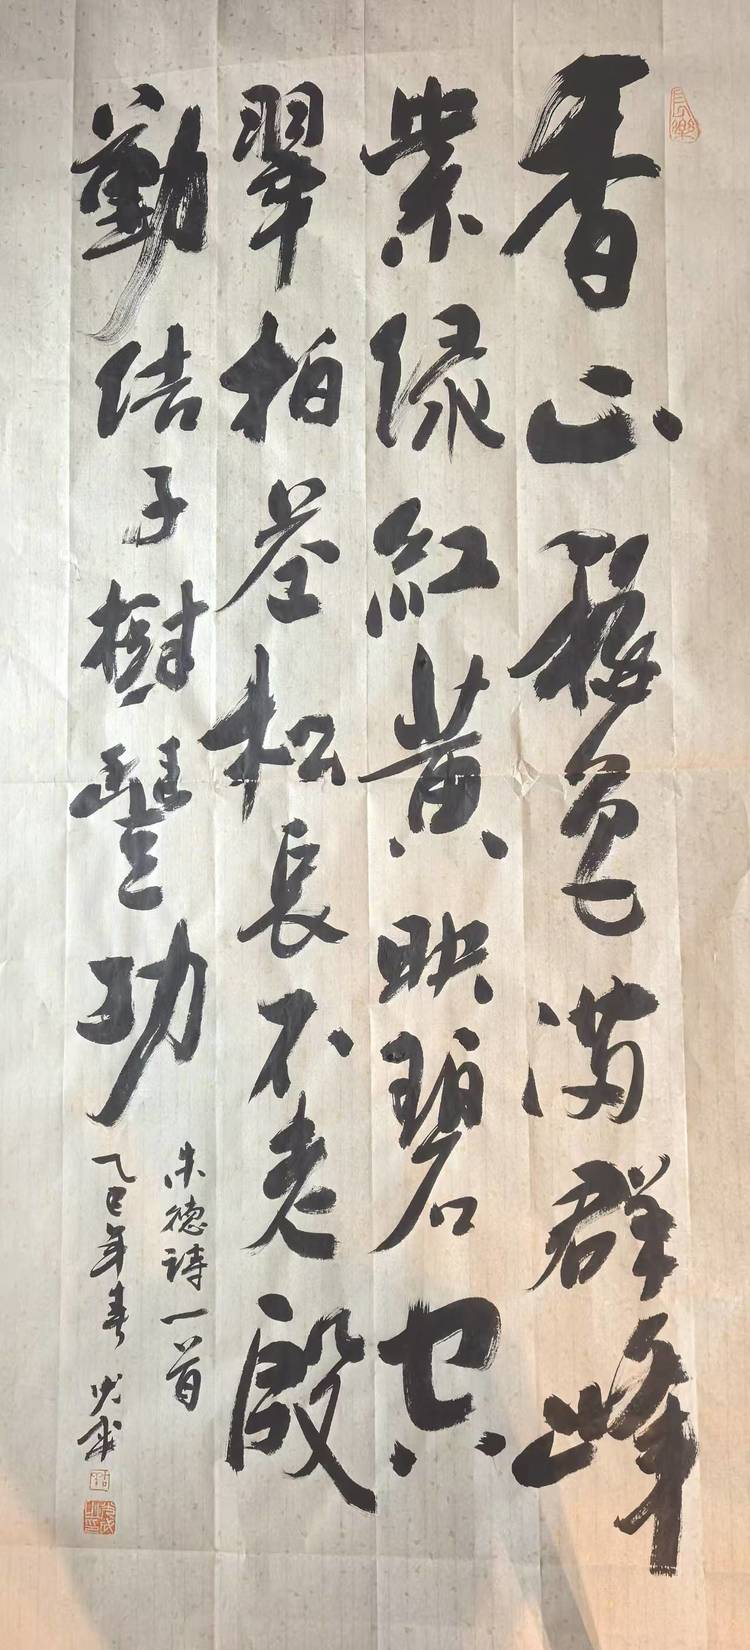 香山色满群峰
紫绿红黄映碧空
翠柏苍松長不老殷
勤结子樹豐功
朱德诗一首
乙巳年春
長樂